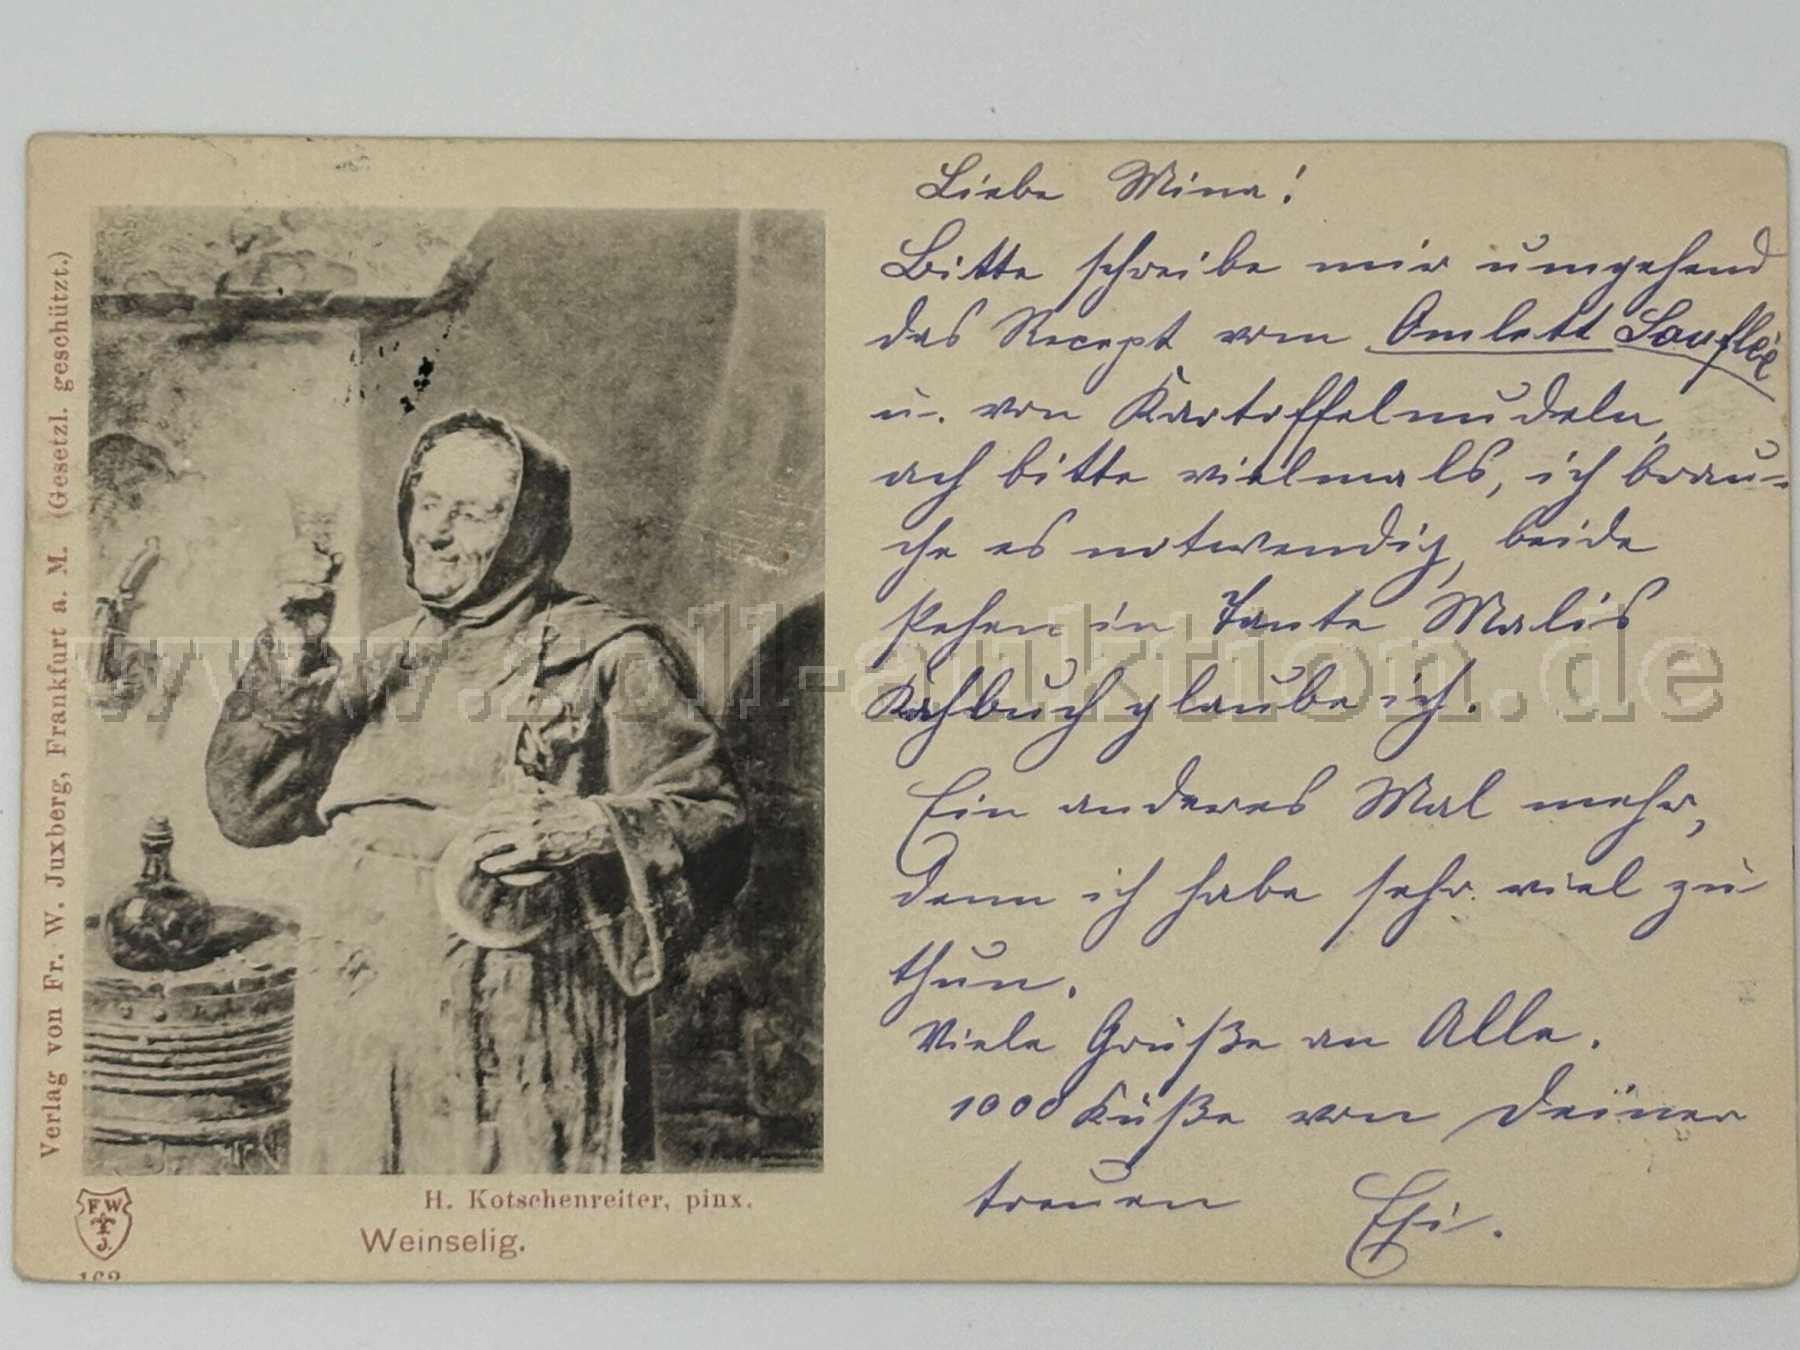 Verlag von Fr. W. Juxberg, Frankfurt a. M. (Gesetzl. geschützt.)
H. Kotschenreiter, pinx.
Weinselig.
F W
J.
162
Liebe Mina!
Bitte schreibe mir umgehend
das Recept vom Omlett Soufleé
u. von Kartoffelnudeln,
ach bitte vielmals, ich brau-
che es notwendig, beide
stehen in Tante Malis
Kochbuch glaube ich.
Ein anderes Mal mehr,
denn ich habe sehr viel zu
thun.
Viele Grüße an Alle.
1000 Küße von Deiner
treuen
www.zoll-auktion.de